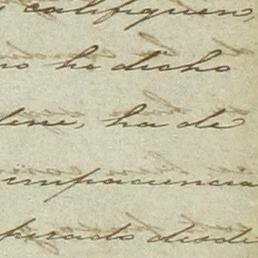 califiquen,
no ha dicho
tiene, ha de
impaciencia
perado desde